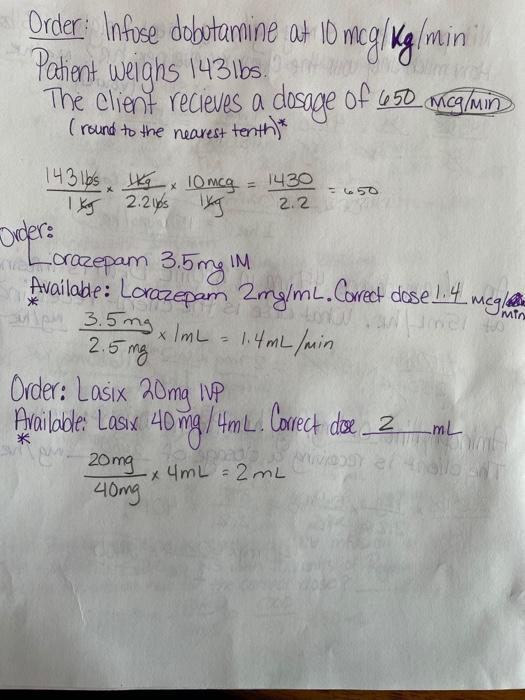 Order: Infuse dobutamine at 10 mcg/kg/min
Patient weighs 143lbs.
The client recieves a dosage of 650 mcg/min
(round to the nearest tenth)*
143lbs/1kg × 1kg/2.2lbs × 10mcg/1kg = 1430/2.2 = 650
Order:
Lorazepam 3.5mg IM
* Available: Lorazepam 2mg/mL. Correct dose 1.4 mcg/min
3.5mg/2.5mg × 1mL = 1.4mL/min
Order: Lasix 20mg IVP
Available: Lasix 40mg/4mL. Correct dose 2 mL
*
20mg/40mg × 4mL = 2mL